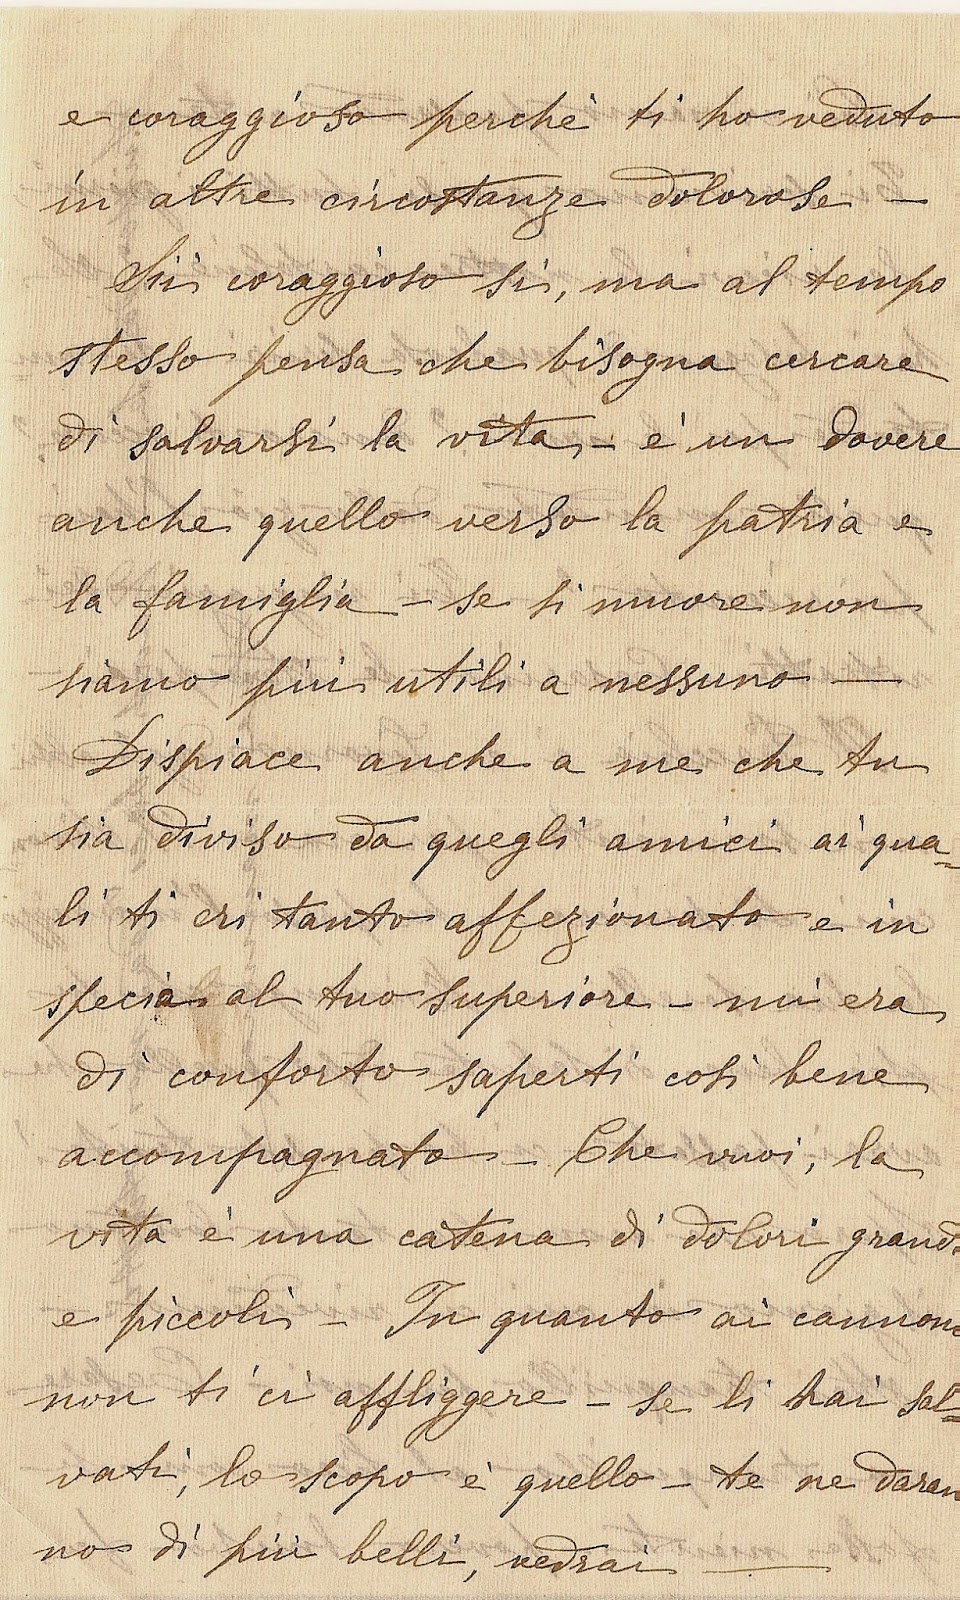 e coraggioso perchè ti ho veduto
in altre circostanze dolorose —
Sii coraggioso sì, ma al tempo
stesso pensa che bisogna cercare
di salvarsi la vita, — è un dovere
anche quello verso la patria e
la famiglia — se si muore non
siamo più utili a nessuno —
Dispiace anche a me che tu
sia diviso da quegli amici ai qua=
li ti eri tanto affezionato e in
specia al tuo superiore — mi era
di conforto saperti così bene
accompagnato — Che vuoi, la
vita è una catena di dolori grandi
e piccoli — In quanto ai cannoni
non ti ci affliggere — se li hai sal=
vati, lo scopo è quello — te ne daran
no di più belli, vedrai —